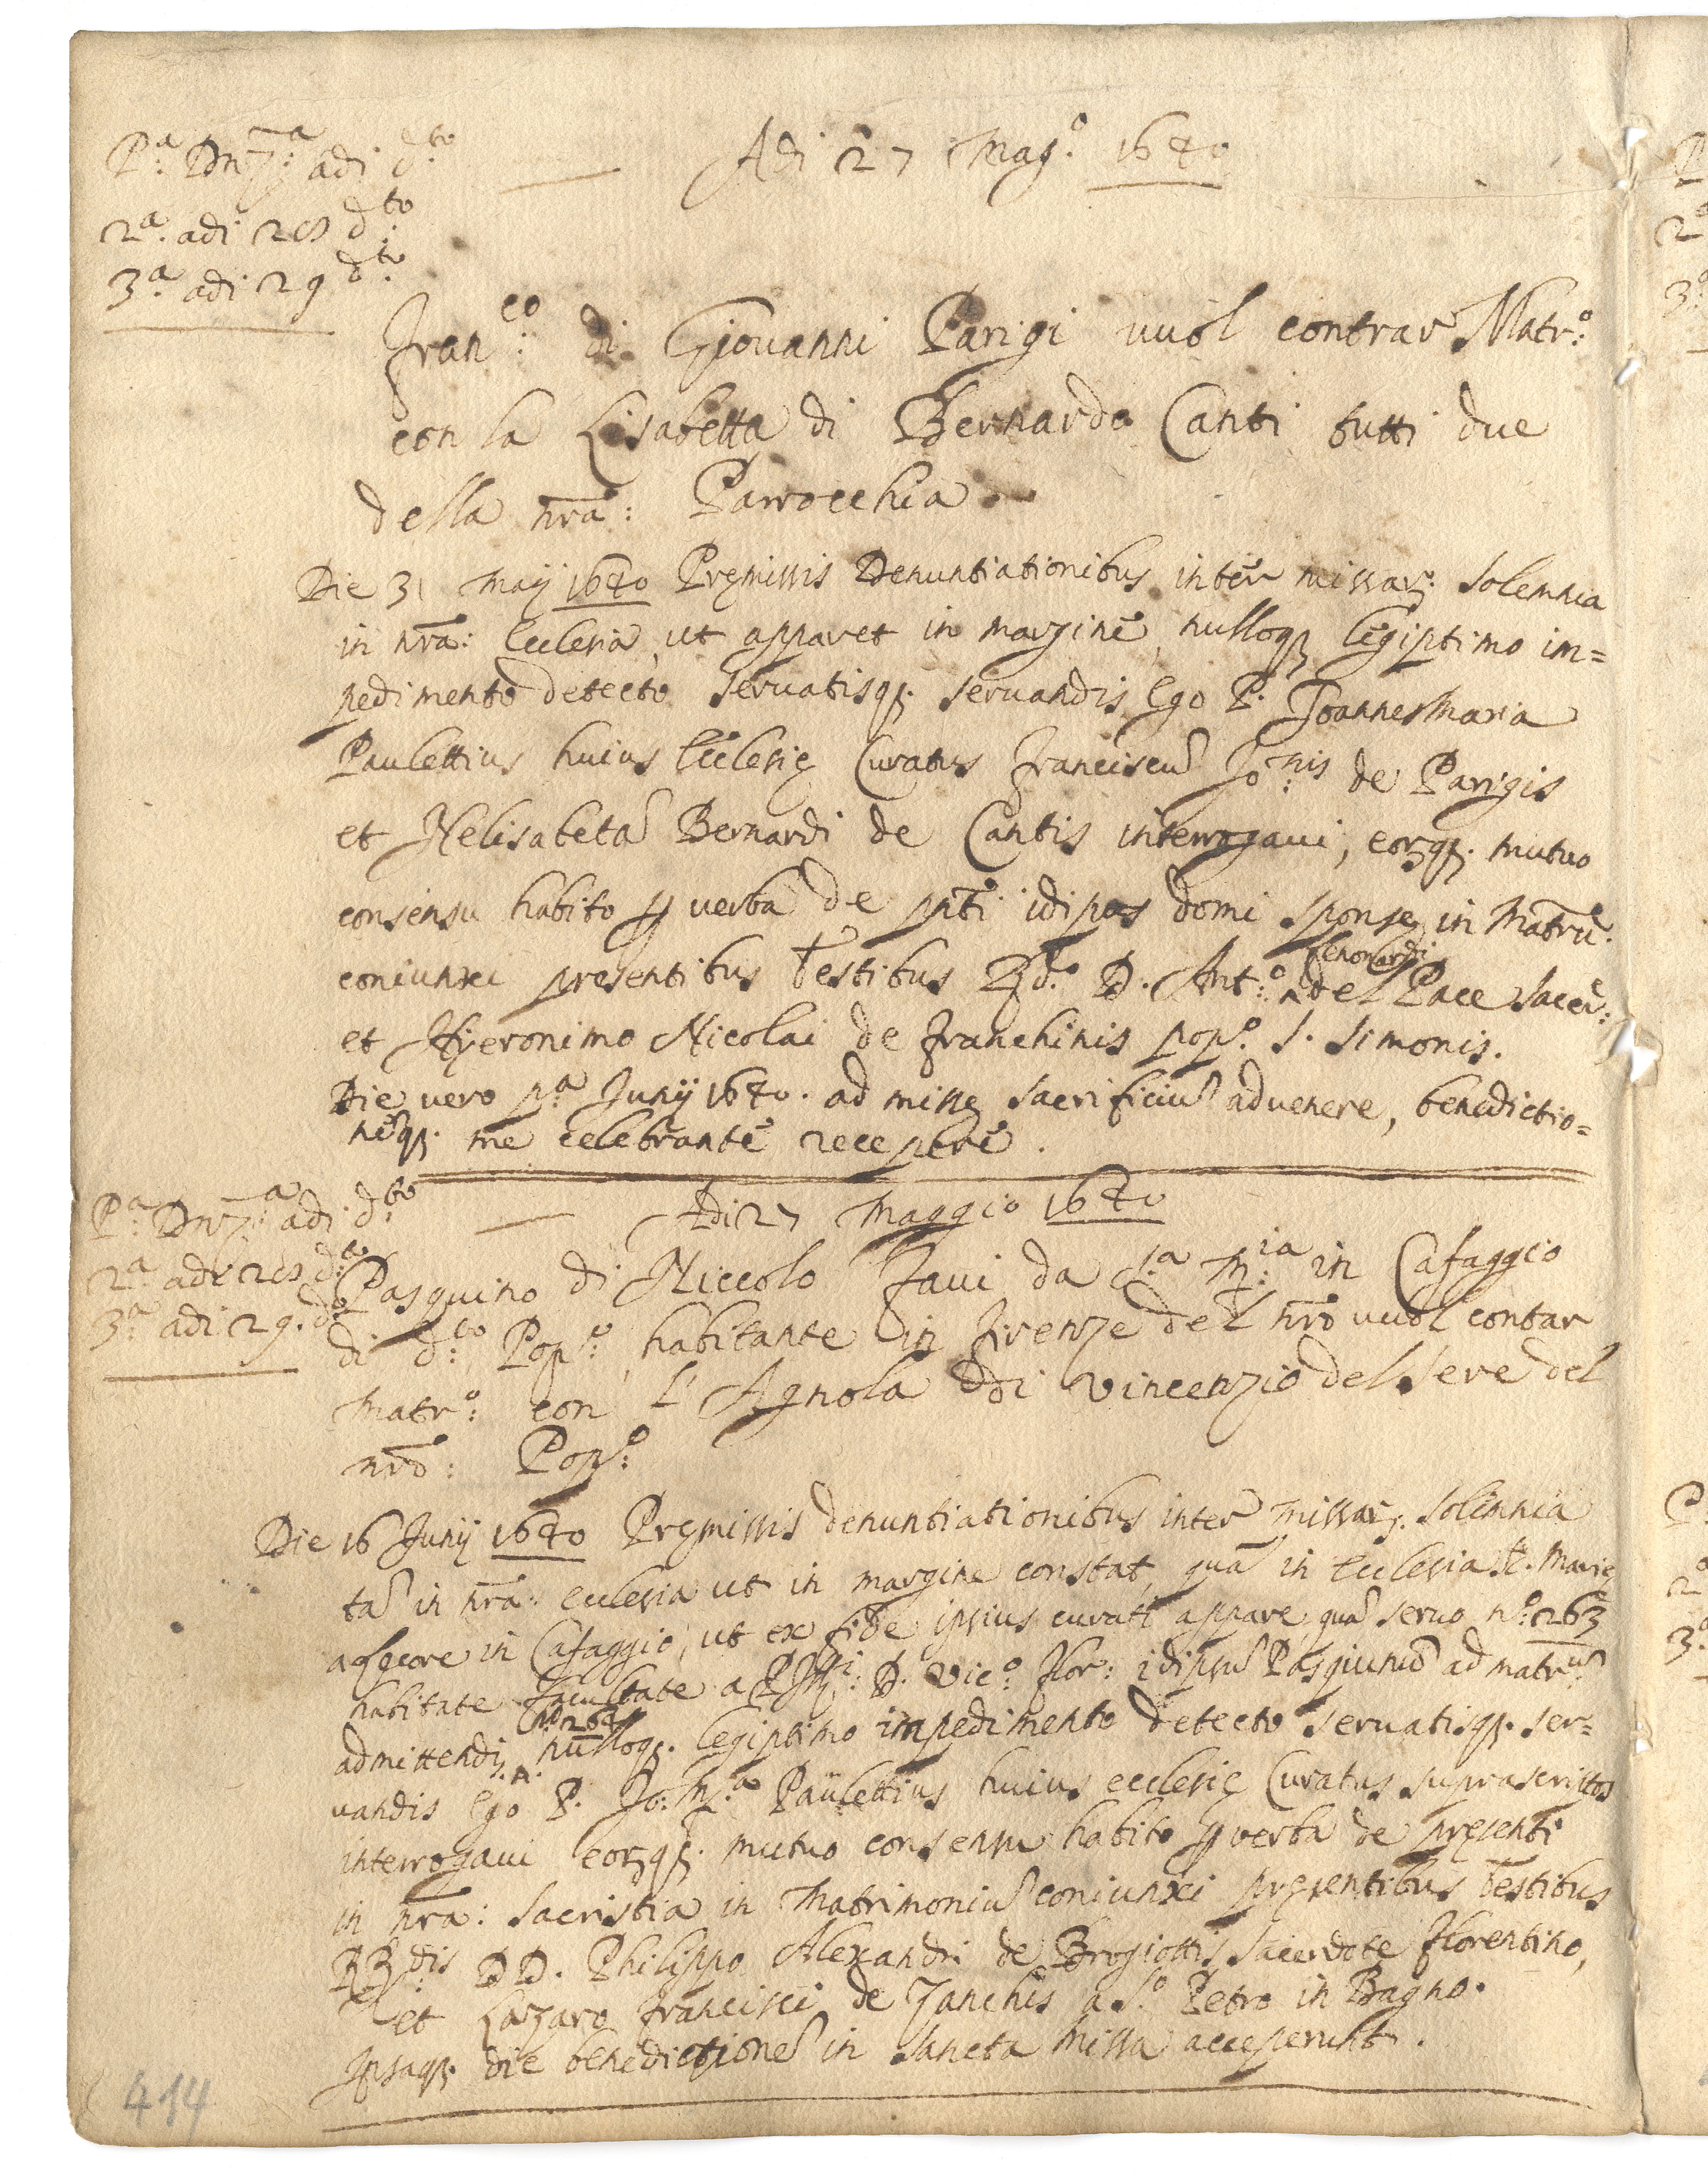 P.ª Dnz.ª adi d.to
2.ª adi 28 d.to
3.ª adi 29 d.to
Adi 27 Mag.º 1640
Fran.co di Giouanni Parigi uuol contrar Matr.º
con la Lisabetta di Bernardo Canti tutti due
della nr̃a: Parrocchia
Die 31 Maij 1640 Pręmissis Denuntiationibus inter missar: solemnia
in nr̃a: Ecclesia, ut apparet in margine, nulloq; legiptimo im=
pedimento detecto seruatisq; seruandis Ego P. Joannes Maria
Paulettius huius Ecclesię Curatus Franciscũ Jo:nis de Parigis
et Helisabetã Bernardi de Cantis interrogaui, eorq; mutuo
consensu habito ꝑ uerba de pñti idipsos domi sponsę in Matrũ.
coniunxi presentibus Testibus R.do D. Ant.º Lenonardi del Pace Sacer:
et Hyeronimo Nicolai de Franchinis pop.º S. Simonis.
Die uero p.ª Junij 1640. ad missę sacrificiũ aduenere, benedictio=
nẽq; me celebrante recepere.
P.ª Dnz.ª adi d.to
2.ª adi 28 d.to
3.ª adi 29. d.to
Adi 27 Maggio 1640
Pasquino di Niccolo Faui da S.ª M.ia in Cafaggio
di d.to Pop.º habitante in Firenze del nr̃o uuol contar
Matr.º con L'Agnola di Vincenzio del Sere del
nr̃o: Pop.º
Die 16 Junij 1640 Pręmissis denuntiationibus inter missar. solemnia
tã in nr̃a: ecclesia ut in margine constat, quã in Ecclesia S. Marię
a fecore in Cafaggio, ut ex fide ipsius curati appare, quã seruo n.º 263
habitate facultate a P. Ill.mi D. Vic.º Flor: idipsũ Pasquinũ ad matr.ũ
admittendi n.º 264 nulloq; legiptimo impedimento detecto seruatisq; ser=
uandis Ego P. Jo: M.ª Paulettius huius ecclesię Curatus suprascrittos
interrogaui eorq; mutuo consensu habito ꝑ uerba de pręsenti
in nr̃a: Sacristia in Matrimoniũ coniunxi pręsentibus Testibus
RR.dis DD. Philippo Alexandri de Brogiottis Sacerdote Florentino,
et Lazaro Francisci de Zanchis a S.º Petro in Bagno.
Ipsaq; die benedictionẽ in Sancta Missa acceperunt.
414